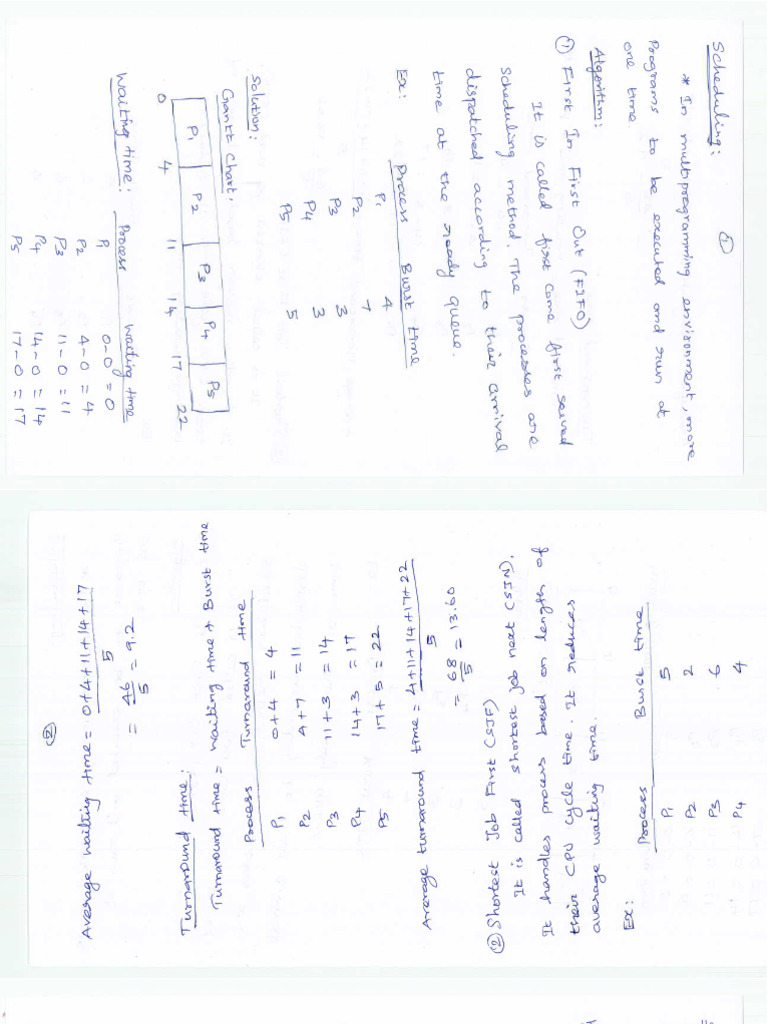 ①
Scheduling:
* In multiprogramming environment, more
programs to be executed and run at
one time.
Algorithm:
① First In First Out (FIFO)
It is called first come first served
scheduling method. The processes are
dispatched according to their arrival
time at the ready queue.
Ex: Process Burst time
P1 4
P2 7
P3 3
P4 3
P5 5
Solution:
Gantt Chart:
P1 P2 P3 P4 P5
0 4 11 14 17 22
Waiting time: Process Waiting time
P1 0-0 = 0
P2 4-0 = 4
P3 11-0 = 11
P4 14-0 = 14
P5 17-0 = 17
②
Average waiting time = 0+4+11+14+17
5
= 46/5 = 9.2
Turnaround time:
Turnaround time = waiting time + Burst time
Process Turnaround time
P1 0+4 = 4
P2 4+7 = 11
P3 11+3 = 14
P4 14+3 = 17
P5 17+5 = 22
Average turnaround time = 4+11+14+17+22
5
= 68/5 = 13.60
② Shortest Job First (SJF)
It is called shortest job next (SJN).
It handles process based on length of
their CPU cycle time. It reduces
average waiting time.
Ex: Process Burst time
P1 5
P2 2
P3 6
P4 4